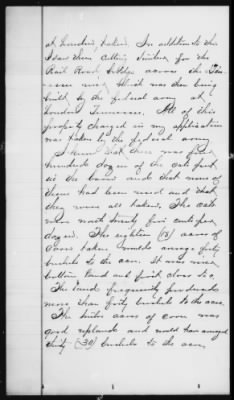 at Loudon, taken. In addition to this
I saw them cutting timber for the
Rail Road bridge across the Ten-
nessee river which was then being
built by the federal army at
Loudon Tennessee. All of this
property charged in my application
was taken by the federal army.
I know that there was
hundred dozen of the oats put
in the barn and that none of
them had been used and that
they were all taken. The oats
were worth twenty five cents per
dozen. The eighteen (18) acres of
corn taken would average forty
bushels to the acre. It was river
bottom land and first class too.
The land frequently produces
more than forty bushels to the acre.
The acres of corn was
good uplands and would have averaged
thirty (30) bushels to the acre,